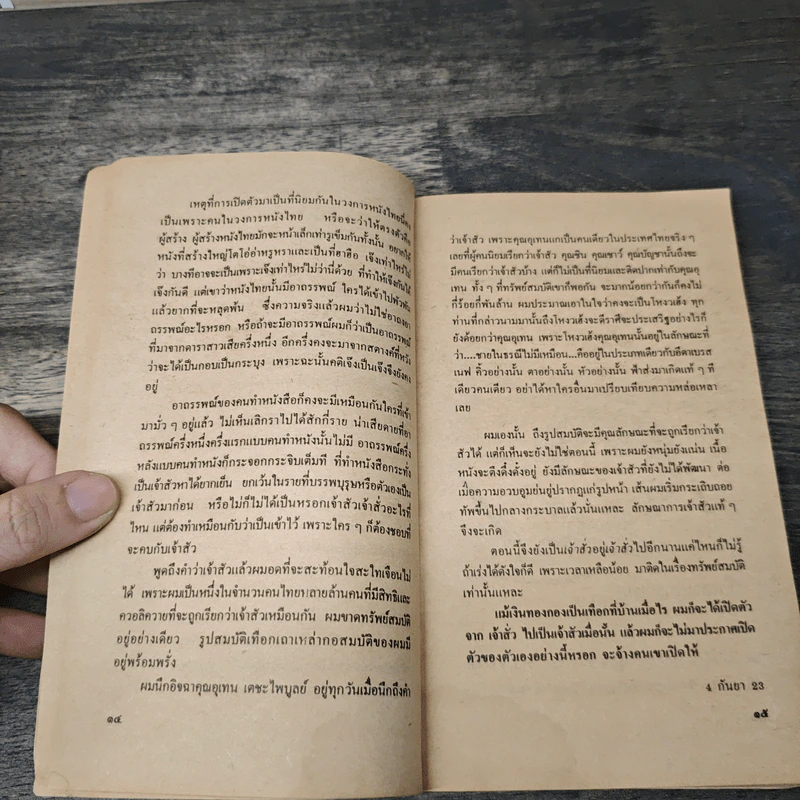 เหตุที่การเปิดตัวมาเป็นที่นิยมกันในวงการหนังไทย
เป็นเพราะคนในวงการหนังไทย หรือจะว่าให้ตรงตัวคือ
ผู้สร้าง ผู้สร้างหนังไทยมักจะหน้าเล็กเท่ารูเข็มกันทั้งนั้น อยากให้
หนังที่สร้างใหญ่โตโอ่อ่าหรูหราและเป็นที่ฮาฮือ เจ๊งเท่าไหร่ไม่
ว่า บางทีอาจจะเป็นเพราะเจ๊งเท่าไหร่ไม่ว่านี่ด้วย ที่ทำให้เจ๊งกันได้
เจ๊งกันดี แต่เขาว่าหนังไทยนั้นมีอาถรรพณ์ ใครได้เข้าไปพัวพัน
แล้วยากที่จะหลุดพ้น ซึ่งความจริงแล้วผมว่าไม่ใช่อาถงอา
ถรรพณ์อะไรหรอก หรือถ้าจะมีอาถรรพณ์ผมก็ว่าเป็นอาถรรพณ์
ที่มาจากดาราสาวเสียครึ่งหนึ่ง อีกครึ่งคงจะมาจากสตางค์ที่หวัง
ว่าจะได้เป็นกอบเป็นกระบุง เพราะฉะนั้นคติเจ๊งเป็นเจ๊งจึงยังคง
อยู่
อาถรรพณ์ของคนทำหนังสือก็คงจะมีเหมือนกันใครที่เข้า
มามั่ว ๆ อยู่แล้ว ไม่เห็นเลิกราไปได้สักกี่ราย น่าเสียดายที่อา
ถรรพณ์ครึ่งหนึ่งครึ่งแรกแบบคนทำหนังนั้นไม่มี อาถรรพณ์ครึ่ง
หลังแบบคนทำหนังก็กระจอกกระจิบเต็มที ที่ทำหนังสือกระทั่ง
เป็นเจ้าสัวหาได้ยากเย็น ยกเว้นในรายที่บรรพบุรุษหรือตัวเองเป็น
เจ้าสัวมาก่อน หรือไม่ก็ไม่ได้เป็นหรอกเจ้าสัวเจ้าสัวอะไรที่
ไหน แต่ต้องทำเหมือนกับว่าเป็นเข้าไว้ เพราะใคร ๆ ก็ต้องชอบที่
จะคบกับเจ้าสัว
พูดถึงคำว่าเจ้าสัวแล้วผมอดที่จะสะท้อนใจสะใทเจือนไม่
ได้ เพราะผมเป็นหนึ่งในจำนวนคนไทยหลายล้านคนที่มีสิทธิและ
ควอลิควายที่จะถูกเรียกว่าเจ้าสัวเหมือนกัน ผมขาดทรัพย์สมบัติ
อยู่อย่างเดียว รูปสมบัติเทือกเถาเหล่ากอสมบัติของผมมี
อยู่พร้อมพรั่ง
ผมนึกอิจฉาคุณอุเทน เตชะไพบูลย์ อยู่ทุกวันเมื่อนึกถึงคำ
๑๔
ว่าเจ้าสัว เพราะคุณอุเทนแกเป็นคนเดียวในประเทศไทยจริง ๆ
เลยที่ผู้คนนิยมเรียกว่าเจ้าสัว คุณชิน คุณเชาว์ คุณบัญชานั้นถึงจะ
มีคนเรียกว่าเจ้าสัวบ้าง แต่ก็ไม่เป็นที่นิยมและติดปากเท่ากับคุณอุ
เทน ทั้ง ๆ ที่ทรัพย์สมบัติเขาก็พอกัน จะมากน้อยกว่ากันก็คงไม่
กี่ร้อยกี่พันล้าน ผมประมาณเอาในใจว่าคงจะเป็นโหงวเฮ้ง ทุก
ท่านที่กล่าวนามมานั้นถึงโหงวเฮ้งจะดีราศีจะประเสริฐอย่างไรก็
ยังด้อยกว่าคุณอุเทน เพราะโหงวเฮ้งคุณอุเทนนั้นอยู่ในลักษณะที่
ว่า....ชายในธรณีไม่มีเหมือน...คืออยู่ในประเภทเดียวกับอีตาเบรส
เนฟ คิ้วอย่างนั้น ตาอย่างนั้น หัวอย่างนั้น ฟ้าส่งมาเกิดแท้ ๆ ที
เดียวคนเดียว อย่าได้หาใครอื่นมาเปรียบเทียบความหล่อเหลา
เลย
ผมเองนั้น ถึงรูปสมบัติจะมีคุณลักษณะที่จะถูกเรียกว่าเจ้า
สัวได้ แต่ก็เห็นจะยังไม่ใช่ตอนนี้ เพราะผมยังหนุ่มยังแน่น เนื้อ
หนังจะตึงตึ๋งดั๋งอยู่ ยังมีลักษณะของเจ้าสัวที่ยังไม่ได้พัฒนา ต่อ
เมื่อความอวบอูมย่นยู่ปรากฏแก่รูปหน้า เส้นผมเริ่มกระเถิบถอย
ทัพขึ้นไปกลางกระบาลแล้วนั่นแหละ ลักษณาการเจ้าสัวแท้ ๆ
จึงจะเกิด
ตอนนี้จึงยังเป็นเจ้าสั่วอยู่เจ้าสั่วไปอีกนานแค่ไหนก็ไม่รู้
ถ้าเร่งได้ดังใจก็ดี เพราะเวลาเหลือน้อย มาติดในเรื่องทรัพย์สมบัติ
เท่านั้นแหละ
แม้เงินทองกองเป็นเทือกที่บ้านเมื่อไร ผมก็จะได้เปิดตัว
จาก เจ้าสั่ว ไปเป็นเจ้าสัวเมื่อนั้น แล้วผมก็จะไม่มาประกาศเปิด
ตัวของตัวเองอย่างนี้หรอก จะจ้างคนเขาเปิดให้
4 กันยา 23
๑๕